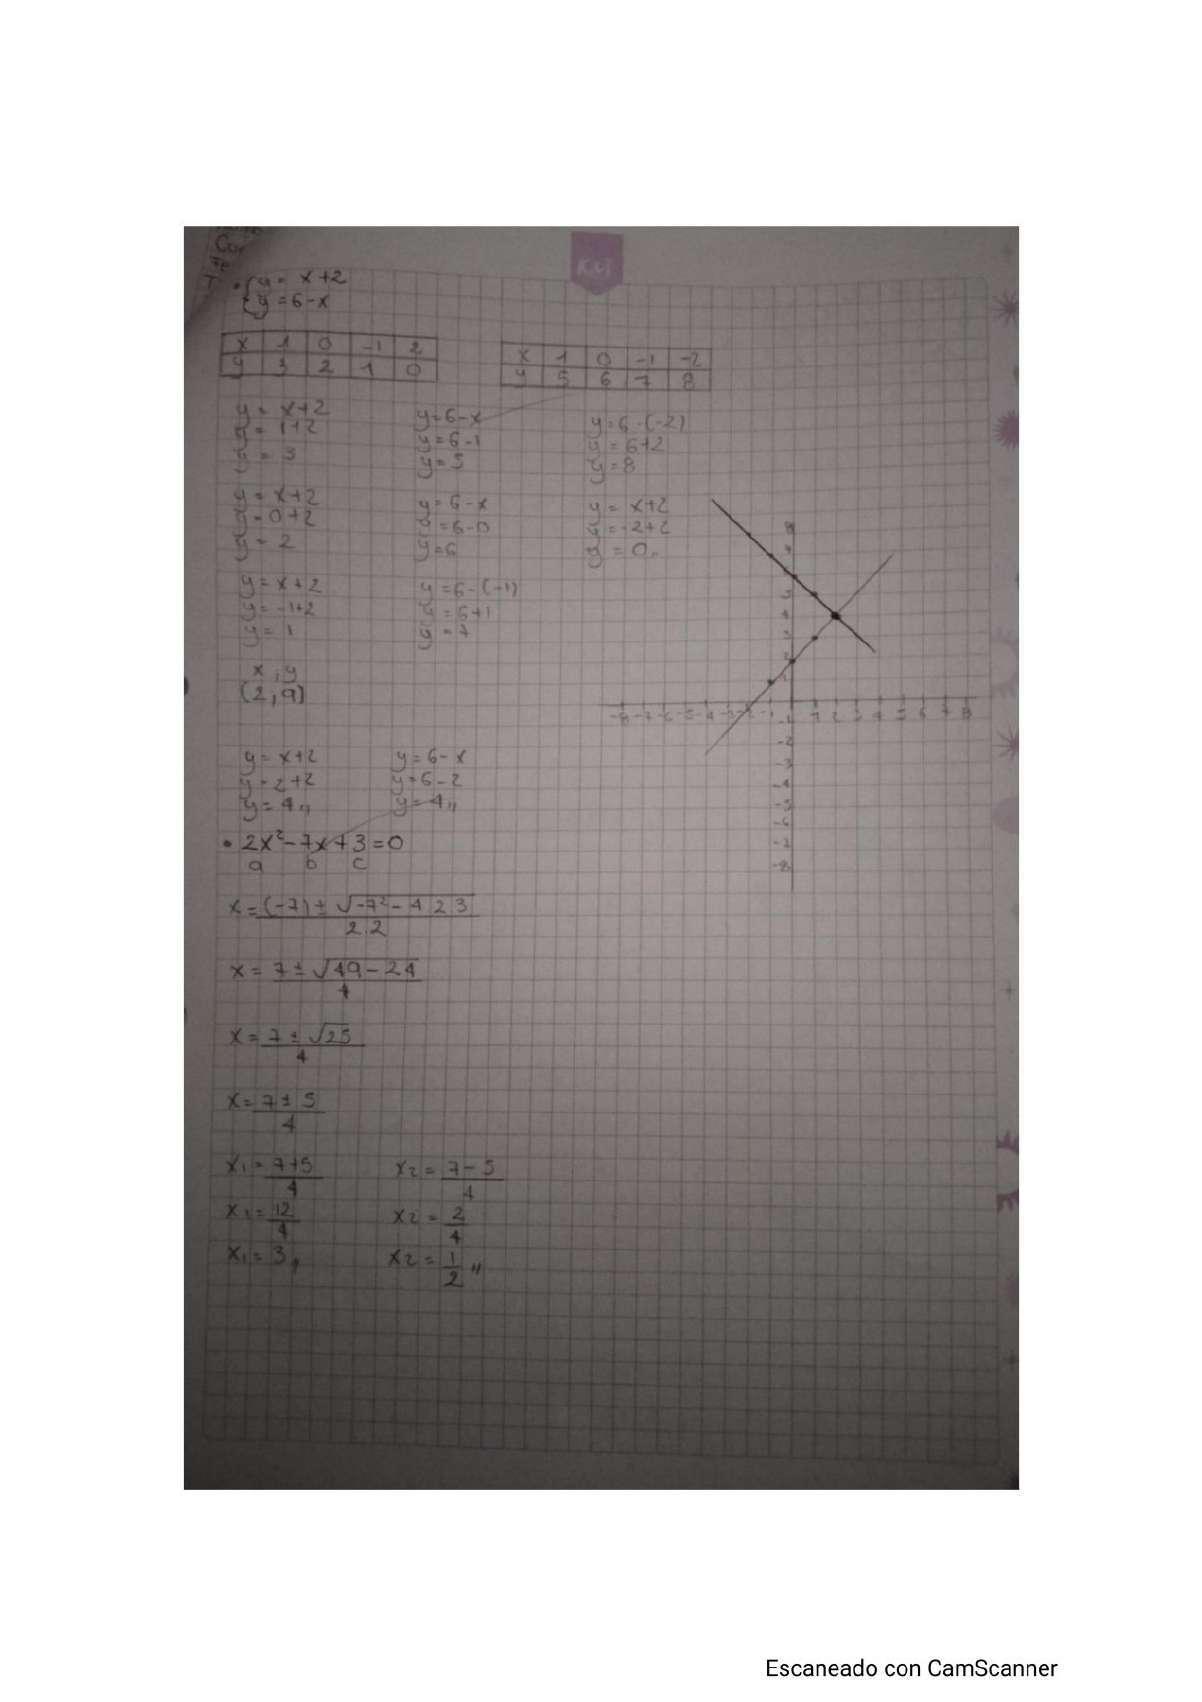 • { y = x+2
y = 6-x
x 1 0 -1 2
y 3 2 1 0
x 1 0 -1 -2
y 5 6 7 8
y = x+2
y = 1+2
y = 3
y = 6-x
y = 6-1
y = 5
y = 6-(-2)
y = 6+2
y = 8
y = x+2
y = 0+2
y = 2
y = 6-x
y = 6-0
y = 6
y = x+2
y = -2+2
y = 0,,
y = x+2
y = -1+2
y = 1
y = 6-(-1)
y = 6+1
y = 7
x , y
(2,4)
8
7
5
4
3
2
1
-8 -7 -6 -5 -4 -3 -2 -1 1 2 3 4 5 6 7 8
-1
-2
-3
-4
-5
-6
-7
-8
y = x+2
y = 2+2
y = 4,,
y = 6-x
y = 6-2
y = 4,,
• 2x²-7x+3=0
a b c
x = (-7) ± √-7² - 4 2 3
2.2
x = 7 ± √49 - 24
4
x = 7 ± √25
4
x = 7 ± 5
4
x₁ = 7+5
4
x₂ = 7-5
4
x₁ = 12
4
x₂ = 2
4
x₁ = 3,,
x₂ = 1
2 ,,
Escaneado con CamScanner